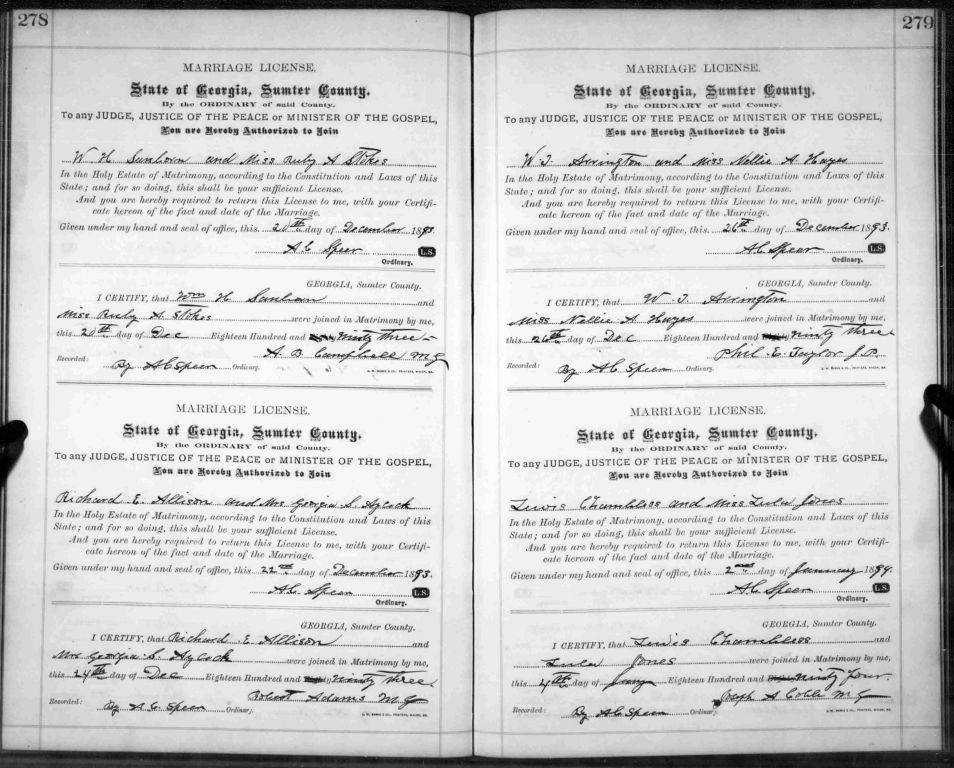 278
MARRIAGE LICENSE.
State of Georgia, Sumter County.
By the ORDINARY of said County.
To any JUDGE, JUSTICE OF THE PEACE or MINISTER OF THE GOSPEL,
You are Hereby Authorized to Join
W. H. Sanborn and Miss Ruby A Stokes
In the Holy Estate of Matrimony, according to the Constitution and Laws of this
State; and for so doing, this shall be your sufficient License.
And you are hereby required to return this License to me, with your Certifi-
cate hereon of the fact and date of the Marriage.
Given under my hand and seal of office, this 20th day of December 1893.
A.C. Speer L.S.
Ordinary.
GEORGIA, Sumter County.
I CERTIFY, that Wm H and
Miss Ruby A. Stokes were joined in Matrimony by me,
this 20th day of Dec Eighteen Hundred and Ninty three
A. B. Campbell M G
Recorded: By A C Speer Ordinary.
MARRIAGE LICENSE.
State of Georgia, Sumter County.
By the ORDINARY of said County.
To any JUDGE, JUSTICE OF THE PEACE or MINISTER OF THE GOSPEL,
You are Hereby Authorized to Join
Richard E. Allison and Mrs Georgia S. Aylock
In the Holy Estate of Matrimony, according to the Constitution and Laws of this
State; and for so doing, this shall be your sufficient License.
And you are hereby required to return this License to me, with your Certifi-
cate hereon of the fact and date of the Marriage.
Given under my hand and seal of office, this 22nd day of December 1893.
A.C. Speer L.S.
Ordinary.
GEORGIA, Sumter County.
I CERTIFY, that Richard E. Allison and
Mrs Georgia S. Aylock were joined in Matrimony by me,
this 24th day of Dec Eighteen Hundred and Ninty three
Robert Adams M G
Recorded: By A. C. Speer Ordinary.
279
MARRIAGE LICENSE.
State of Georgia, Sumter County.
By the ORDINARY of said County.
To any JUDGE, JUSTICE OF THE PEACE or MINISTER OF THE GOSPEL,
You are Hereby Authorized to Join
W. J. Arrington and Miss Nellie A. Hayes
In the Holy Estate of Matrimony, according to the Constitution and Laws of this
State; and for so doing, this shall be your sufficient License.
And you are hereby required to return this License to me, with your Certifi-
cate hereon of the fact and date of the Marriage.
Given under my hand and seal of office, this 26th day of December 1893.
A.C. Speer L.S.
Ordinary.
GEORGIA, Sumter County.
I CERTIFY, that W. J. Arrington and
Miss Nellie A. Hayes were joined in Matrimony by me,
this 26th day of Dec Eighteen Hundred and Ninty three
Phil. C. Taylor J.P.
Recorded: By A C Speer Ordinary.
MARRIAGE LICENSE.
State of Georgia, Sumter County.
By the ORDINARY of said County.
To any JUDGE, JUSTICE OF THE PEACE or MINISTER OF THE GOSPEL,
You are Hereby Authorized to Join
Lewis Chambless and Miss Lula Jones
In the Holy Estate of Matrimony, according to the Constitution and Laws of this
State; and for so doing, this shall be your sufficient License.
And you are hereby required to return this License to me, with your Certifi-
cate hereon of the fact and date of the Marriage.
Given under my hand and seal of office, this 2nd day of January 1894.
A.C. Speer L.S.
Ordinary.
GEORGIA, Sumter County.
I CERTIFY, that Lewis Chambless and
Lula Jones were joined in Matrimony by me,
this 4th day of Eighteen Hundred and Ninty Four.
Joseph A M G
Recorded: By A C Speer Ordinary.